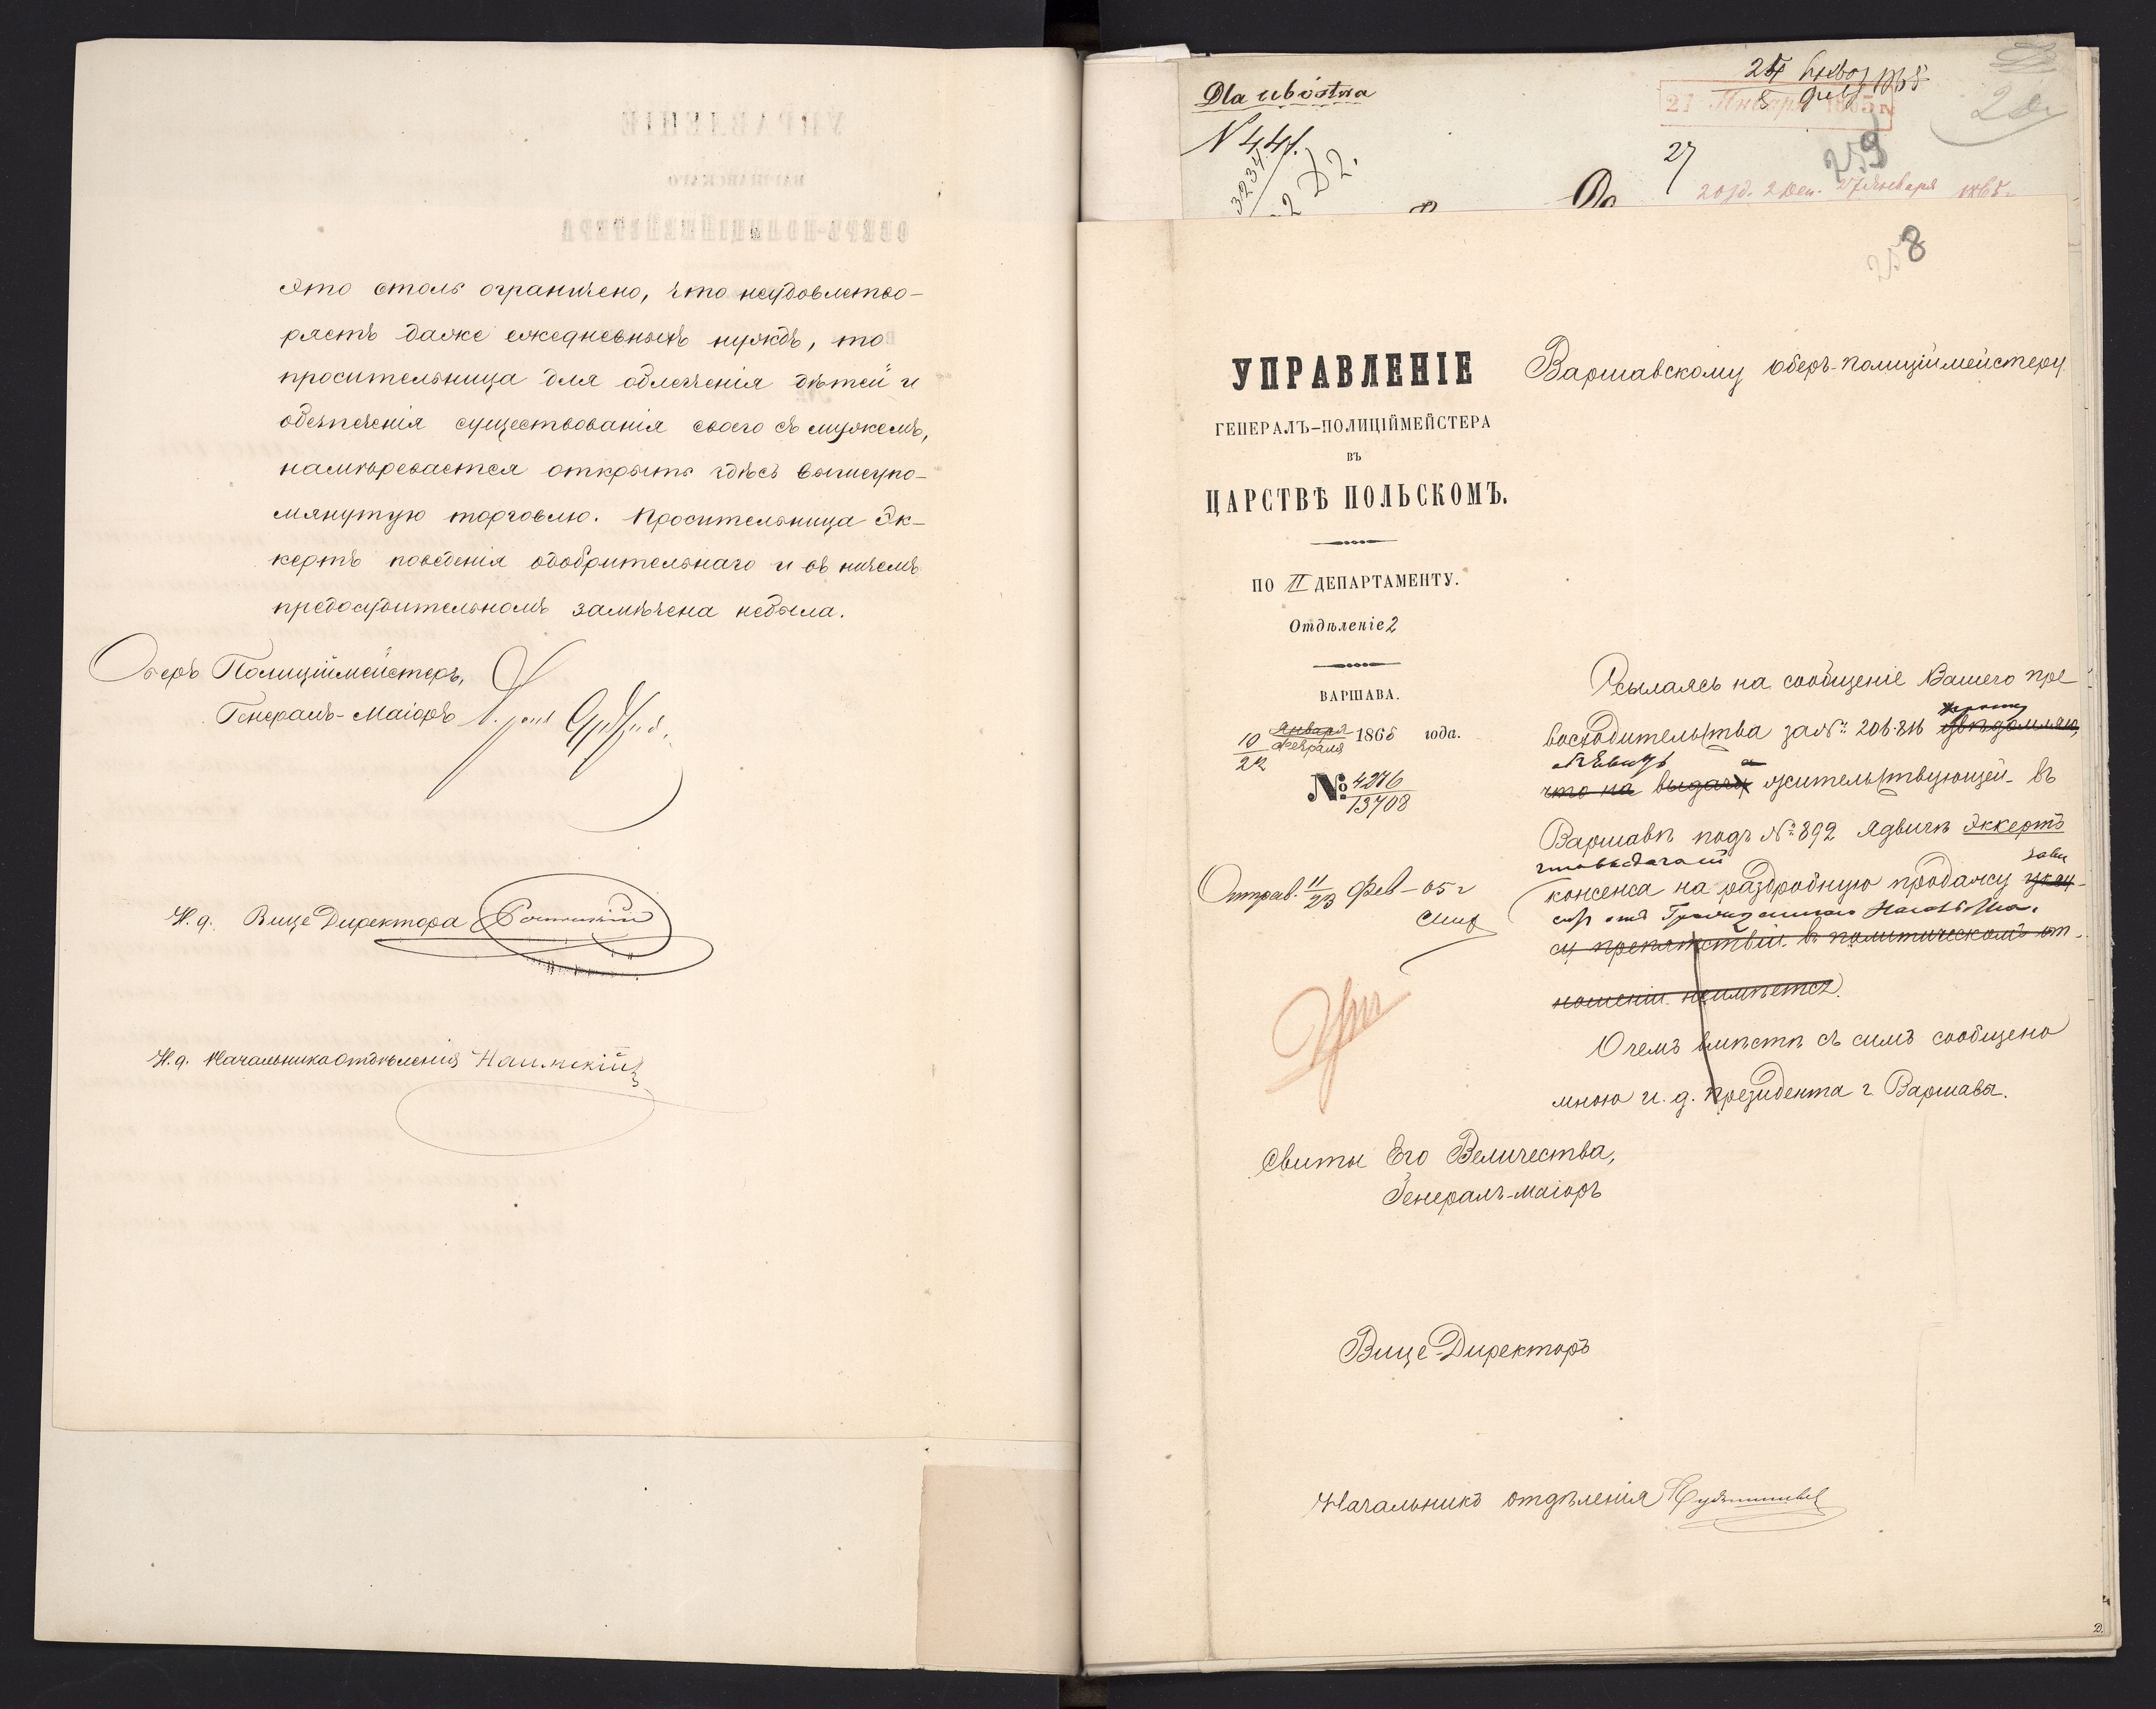 ято столь ограничено, что неудовлетво-
ряетъ даже ежедневныхъ нуждъ, то
просительница для облегченія дѣтей и
обезпеченія существованія своего съ мужемъ,
намѣревается открыть здѣсь вышеупо-
мянутую торговлю. Просительница Эк-
кертъ поведенія одобрительнаго и въ ничемъ
предосудительномъ замѣчена небыла.
Оберъ Полиціймейстеръ,
Генералъ-Маіоръ
И. д. Вице Директора
И. д. Начальника отдѣленія
Dla ubóstwa
N 441.
3234
21 Января 1865
27
2 Деп. 27 Января 1865
259
258
УПРАВЛЕНІЕ
ГЕНЕРАЛЪ-ПОЛИЦІЙМЕЙСТЕРА
ВЪ
ЦАРСТВѢ ПОЛЬСКОМЪ.
ПО II ДЕПАРТАМЕНТУ.
Отдѣленіе 2
ВАРШАВА.
10/22 Января Февраля 1865 года.
№ 4276/13708
Отправ. 11/23 Фев – 65 г
Варшавскому Оберъ-Полиціймейстеру
Ссылаясь на сообщеніе Вашего пре
восходительства за № 206.816 увѣдомляю,
что на выдачу жительствующей въ
Варшавѣ подъ № 892 Ядвигѣ Эккертъ
консенса на раздробную продажу
су препятствій въ политическомъ от-
ношеніи неимѣется.
О чемъ вмѣстѣ съ симъ сообщено
мною и. д. Президента г. Варшавы.
Свиты Его Величества,
Генералъ-маіоръ
Вице-Директоръ
Начальникъ отдѣленія